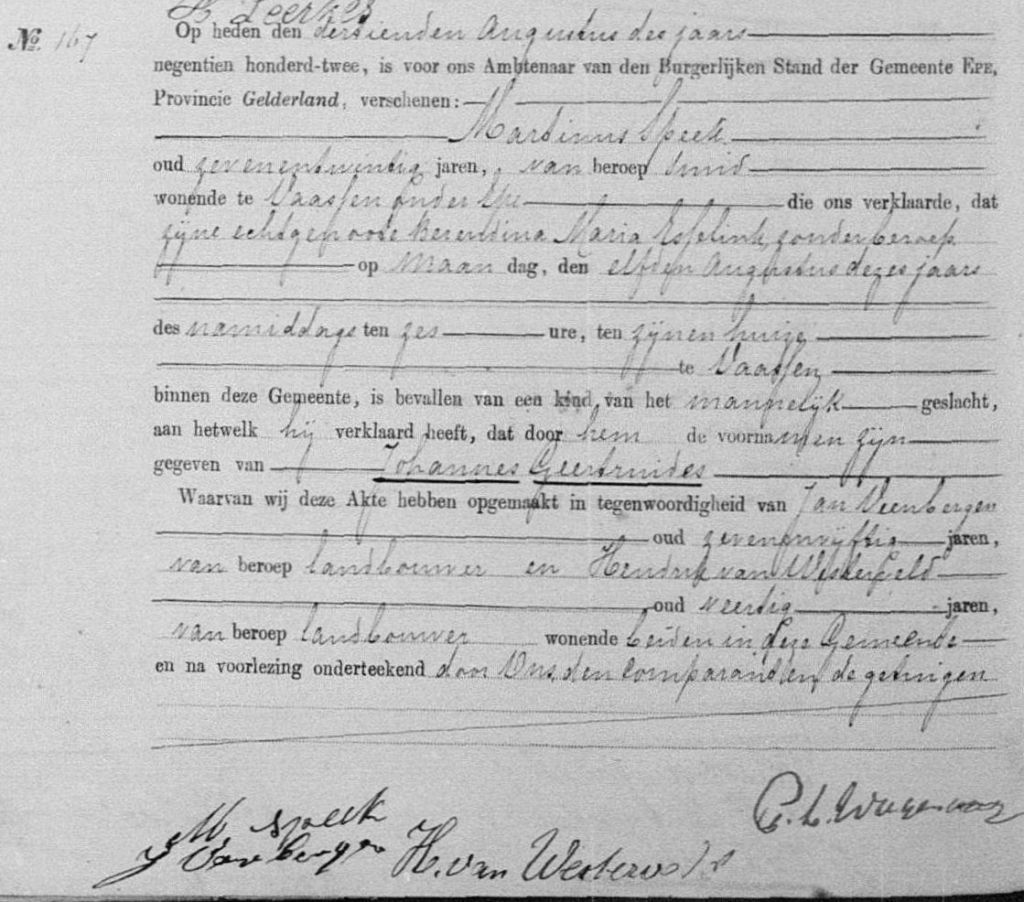 H. Leerkes
No. 167 Op heden den dertienden Augustus des jaars
negentien honderd-twee, is voor ons Ambtenaar van den Burgerlijken Stand der Gemeente EPE,
Provincie Gelderland, verschenen:
Martinus Speek
oud zevenentwintig jaren, van beroep smid
wonende te Vaassen onder Epe die ons verklaarde, dat
zijne echtgenoote Berendina Maria Esselink, zonder beroep
op Maan dag, den elfden Augustus dezes jaars
des namiddags ten zes ure, ten zijnen huize
te Vaassen
binnen deze Gemeente, is bevallen van een kind van het mannelijk geslacht,
aan hetwelk hij verklaard heeft, dat door hem de voornamen zijn
gegeven van Johannes Geertruides
Waarvan wij deze Akte hebben opgemaakt in tegenwoordigheid van Jan Veenbergen
oud zevenenvijftig jaren,
van beroep landbouwer en Hendrik van Westerveld
oud veertig jaren,
van beroep landbouwer wonende beiden in deze Gemeente
en na voorlezing onderteekend door Ons, den comparant en de getuigen
C. L.
M. Speek
J Veenbergen H. van Westerveld